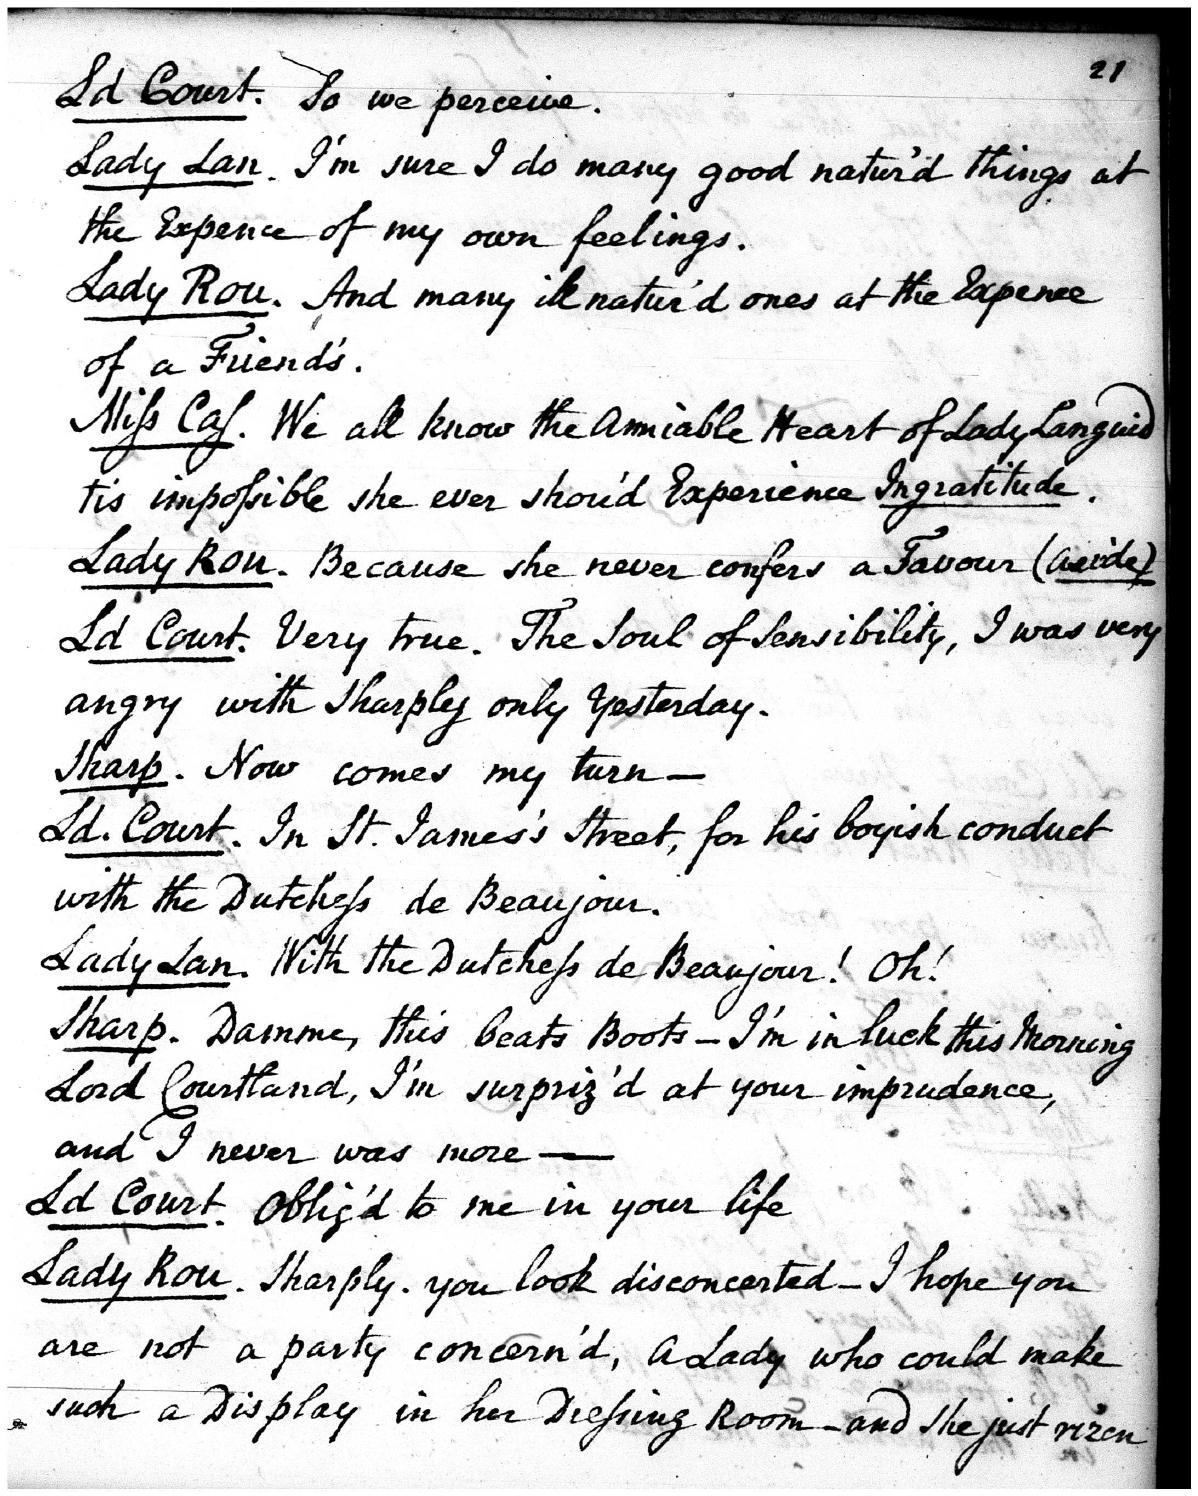 21
Ld Court. So we perceive.
Lady Lan. I'm sure I do many good natur'd things at
the Expence of my own feelings.
Lady Rou. And many ill natur'd ones at the Expence
of a Friend's.
Miſs Caſ. We all know the Amiable Heart of Lady Languid
tis impoſsible she ever shou'd Experience Ingratitude.
Lady Rou. Because she never confers a Favour (aside)
Ld Court. Very true. The Soul of Sensibility, I was very
angry with Sharply only Yesterday.
Sharp. Now comes my turn—
Ld. Court. In St. James's Street, for his boyish conduct
with the Dutcheſs de Beaujour.
Lady Lan. With the Dutcheſs de Beaujour! Oh!
Sharp. Damme, this beats Boots – I'm in luck this Morning
Lord Courtland, I'm surpriz'd at your imprudence,
and I never was more —
Ld Court. Oblig'd to me in your life
Lady Rou. Sharply. you look disconcerted – I hope you
are not a party concern'd, A Lady who could make
such a Display in her Dreſsing Room – and She just rizen